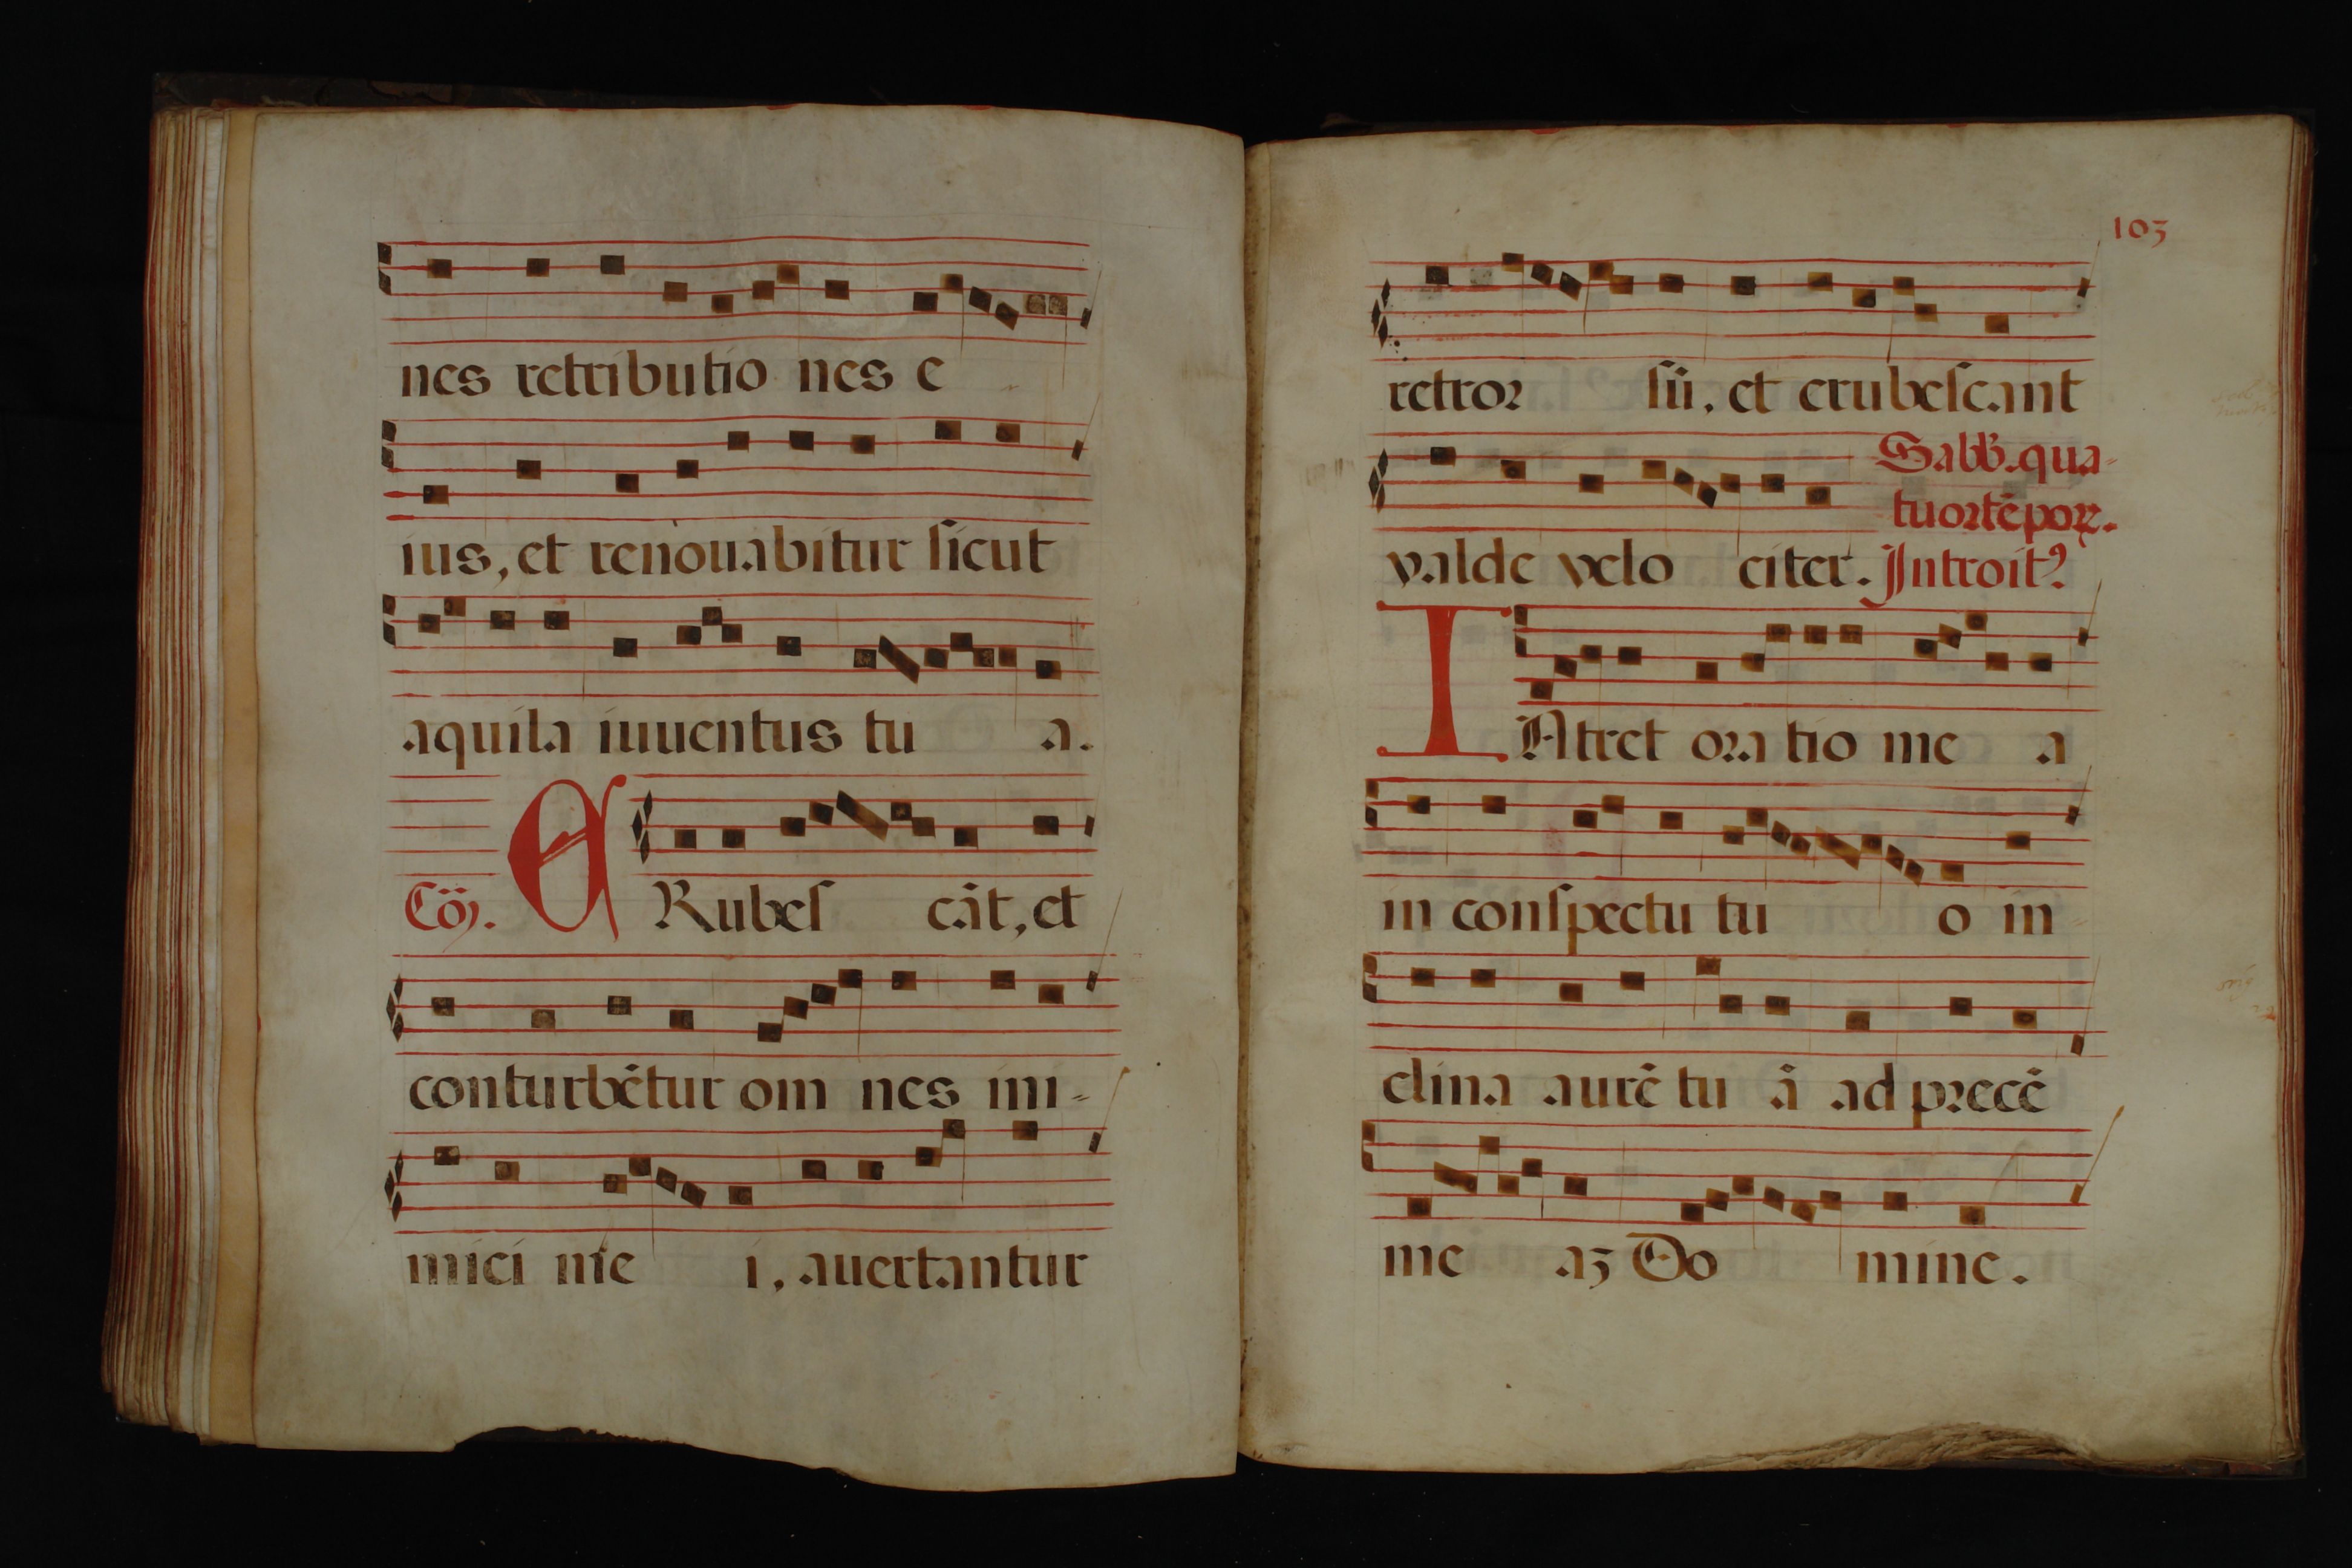 nes retributio nes e
ius, et renouabitur ſicut
aquila iuuentus tu a.
Cõ. E Rubeſ cãt, et
conturbẽtur om nes ini-
mici me i, auertantur
103
retror ſũ, et erubeſcant
Sabb. qua-
tuortẽpoꝝ.
valde velo citer. Introitꝰ
INtret oratio me a
in conſpectu tu o in-
clina aurẽ tu ã ad precẽ
me aȝ Do mine.